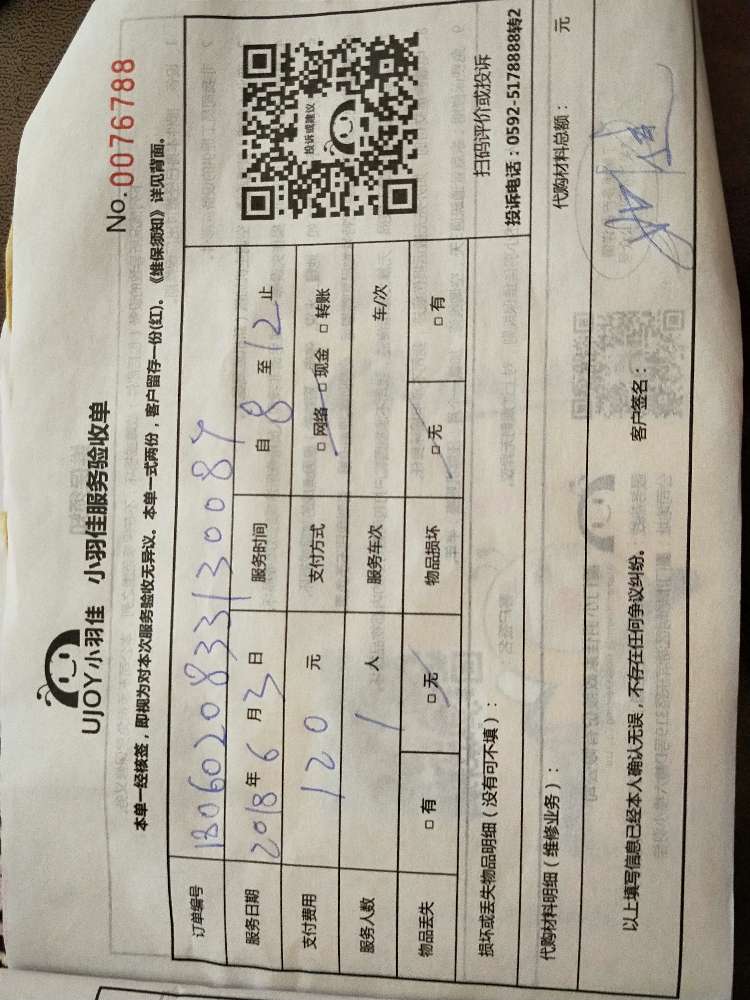 UJOY小羽佳 小羽佳服务验收单
No. 0076788
本单一经核签，即视为对本次服务验收无异议。本单一式两份，客户留存一份(红)。《维保须知》详见背面。
订单编号 180602083313008​7
服务日期 2018年6月3日 服务时间 自8至12止
支付费用 120元 支付方式 □网络 □现金 □转账
服务人数 1人 服务车次 车/次
物品丢失 □有 □无 物品损坏 □无 □有
投诉或建议
扫码评价或投诉
投诉电话：0592-5178888转2
损坏或丢失物品明细（没有可不填）：
代购材料明细（维修业务）： 代购材料总额： 元
以上填写信息已经本人确认无误，不存在任何争议纠纷。 客户签名：